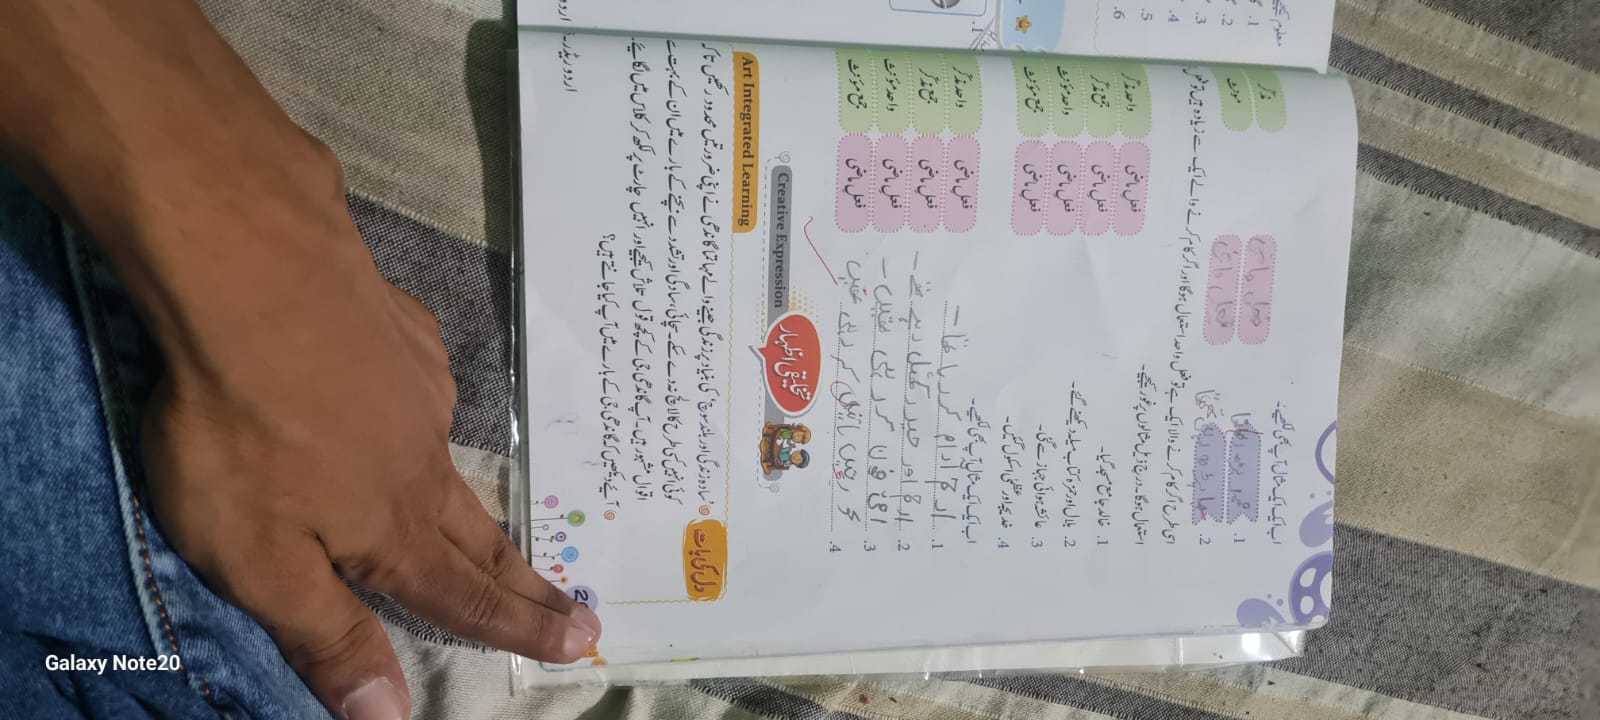 اب ایک ایک مثال آپ بھی لکھیے۔
1. پڑھ رہا تھا فعل ماضی مذکر
2. پڑھ رہی تھی فعل ماضی مونث
اسی طرح اگر کام کرنے والا ایک ہے تو فعل واحد استعمال ہوگا اور اگر کام کرنے والے ایک سے زیادہ ہیں تو فعل
استعمال ہوگا۔ درج ذیل مثالوں پر غور کیجیے۔
1. خالد جامع مسجد گیا۔ فعل ماضی واحد مذکر
2. بلال اور حمزہ کتاب میلہ دیکھنے گئے۔ فعل ماضی جمع مذکر
3. عائشہ ہوائی جہاز سے گئی۔ فعل ماضی واحد مؤنث
4. خدیجہ اور عظمیٰ اسکول گئیں۔ فعل ماضی جمع مؤنث
اب ایک ایک مثال آپ بھی لکھیے۔
1. آرام کر رہا تھا۔ فعل ماضی واحد مذکر
2. اور حیدر کھیل رہے تھے۔ فعل ماضی جمع مذکر
3. امی فون کر رہی تھیں۔ فعل ماضی واحد مؤنث
4. باتیں کر رہی تھیں فعل ماضی جمع مؤنث
تخلیقی اظہار Creative Expression
Art Integrated Learning
دل کی بات
'سادہ زندگی اور بلند سوچ' کی بنیاد پر زندگی جینے والے مہاتما گاندھی نے اپنی ضرورتیں محدود رکھیں تاکہ
کوئی انہیں کسی طرح کا لالچ نہ دے سکے۔ سچائی، سادگی اور تشدد سے بچنے کے بارے میں ان کے بہت سے
اقوال مشہور ہیں۔ آپ گاندھی جی کے کچھ قول تلاش کیجیے اور انہیں چارٹ پر لکھ کر کلاس میں لگائیے۔
آئیے دیکھیں کہ گاندھی جی کے بارے میں آپ کیا جانتے ہیں؟
اردو ریڈر
معلوم کیجیے
1.
2.
3.
4.
5.
6.
1.
Galaxy Note20